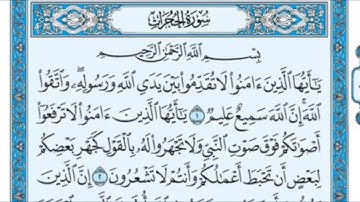 سُورَةُ الْحُجُرَاتِ
بِسْمِ اللَّهِ الرَّحْمَٰنِ الرَّحِيمِ
يَٰٓأَيُّهَا الَّذِينَ ءَامَنُوا لَا تُقَدِّمُوا بَيْنَ يَدَىِ اللَّهِ وَرَسُولِهِۦ ۖ وَاتَّقُوا
اللَّهَ ۚ إِنَّ اللَّهَ سَمِيعٌ عَلِيمٌ ١ يَٰٓأَيُّهَا الَّذِينَ ءَامَنُوا لَا تَرْفَعُوٓا
أَصْوَٰتَكُمْ فَوْقَ صَوْتِ النَّبِىِّ وَلَا تَجْهَرُوا لَهُۥ بِالْقَوْلِ كَجَهْرِ بَعْضِكُمْ
لِبَعْضٍ أَن تَحْبَطَ أَعْمَٰلُكُمْ وَأَنتُمْ لَا تَشْعُرُونَ ٢ إِنَّ الَّذِينَ